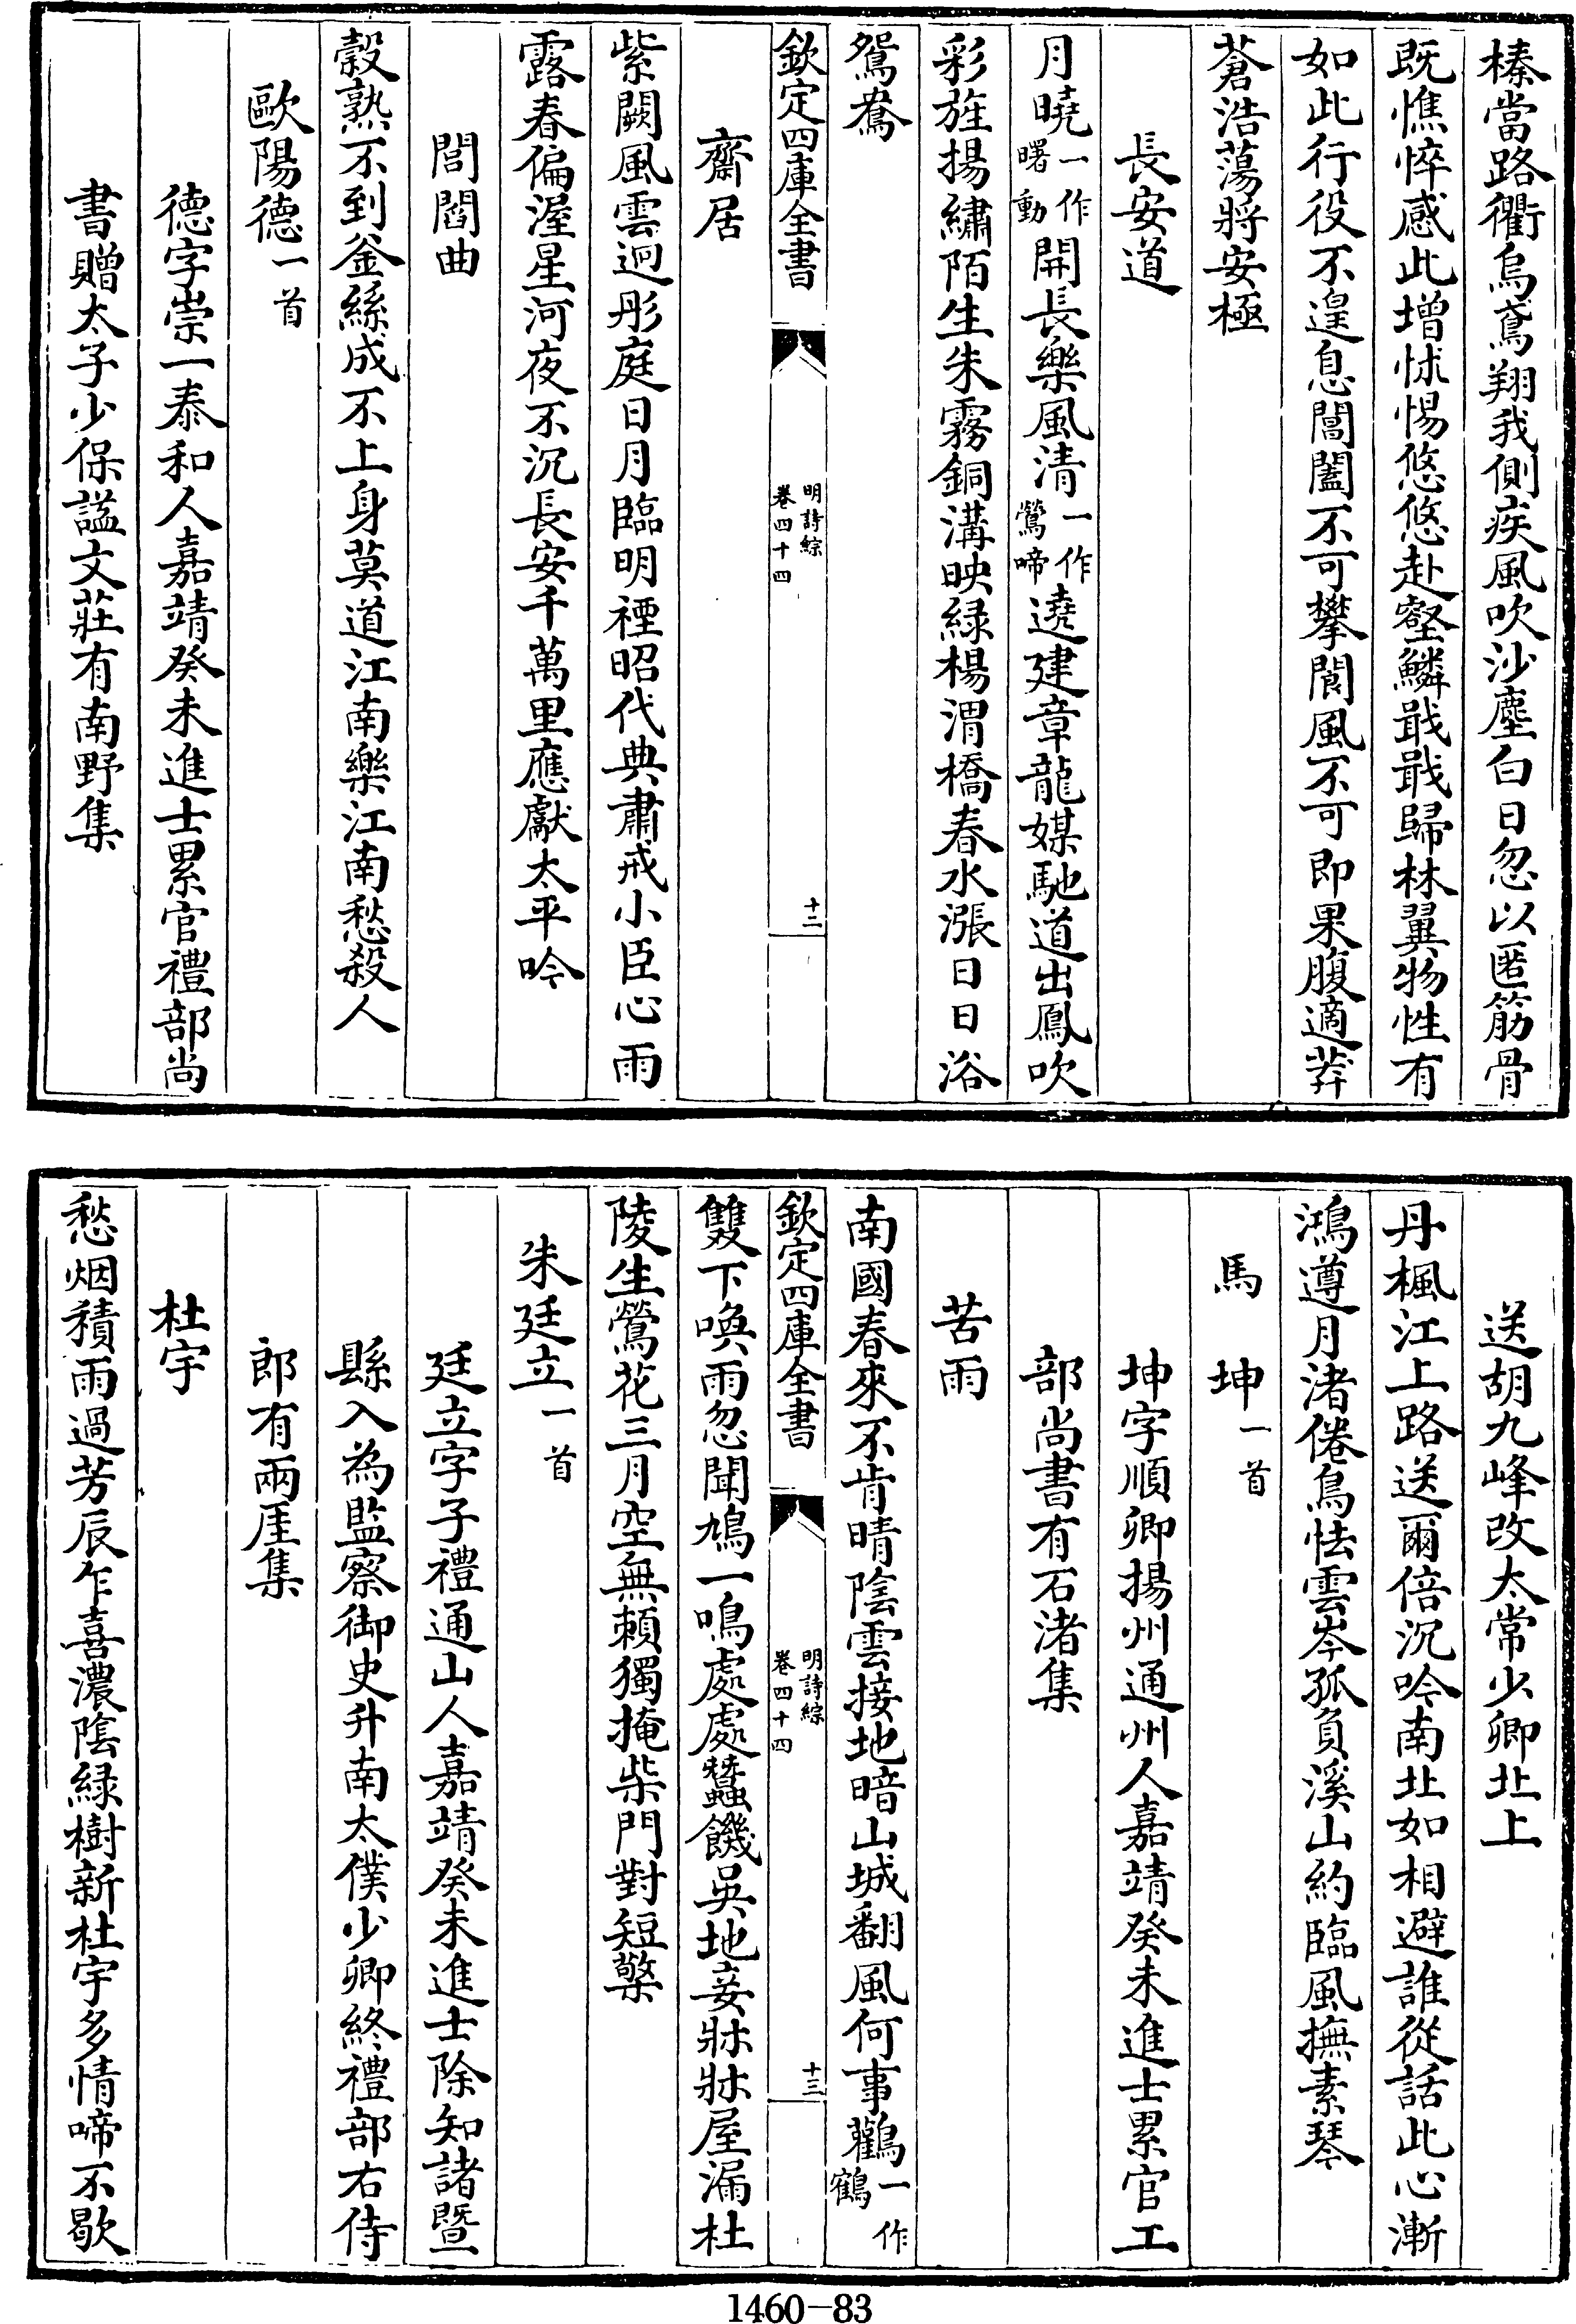 榛當路衢烏鳶翔我側疾風吹沙塵白日忽以匿筋骨
既憔悴感此增怵惕悠悠赴壑鱗戢戢歸林翼物性有
如此行役不遑息閶闔不可攀閬風不可即果腹適莽
蒼浩蕩將安極
長安道
月曉一作曙動開長樂風清一作鶯啼遶建章龍媒馳道出鳳吹
彩旌揚繡陌生朱霧銅溝映綠楊渭橋春水漲日日浴
鴛鴦
欽定四庫全書 明詩綜 卷四十四 十二
齋居
紫闕風雲迥彤庭日月臨明禋昭代典肅戒小臣心雨
露春偏渥星河夜不沉長安千萬里應獻太平吟
閭閻曲
穀熟不到釜絲成不上身莫道江南樂江南愁殺人
歐陽德一首
德字崇一泰和人嘉靖癸未進士累官禮部尚
書贈太子少保諡文莊有南野集
送胡九峰改太常少卿北上
丹楓江上路送爾倍沉吟南北如相避誰從話此心漸
鴻遵月渚倦鳥怯雲岑孤負溪山約臨風撫素琴
馬坤一首
坤字順卿揚州通州人嘉靖癸未進士累官工
部尚書有石渚集
苦雨
南國春來不肯晴陰雲接地暗山城翻風何事鸛一作鶴
欽定四庫全書 明詩綜 卷四十四 十三
雙下喚雨忽聞鳩一鳴處處蠶饑吳地妾牀牀屋漏杜
陵生鶯花三月空無賴獨掩柴門對短檠
朱廷立一首
廷立字子禮通山人嘉靖癸未進士除知諸暨
縣入為監察御史升南太僕少卿終禮部右侍
郎有兩厓集
杜宇
愁烟積雨過芳辰乍喜濃陰緑樹新杜宇多情啼不歇
1460-83